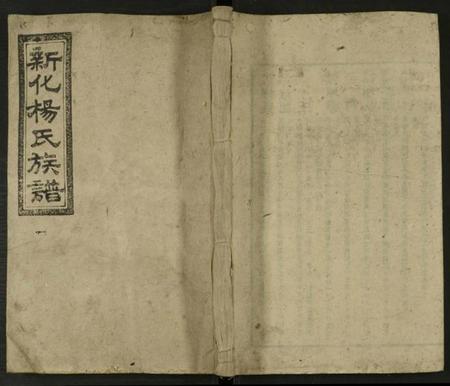 新化楊氏族譜
一